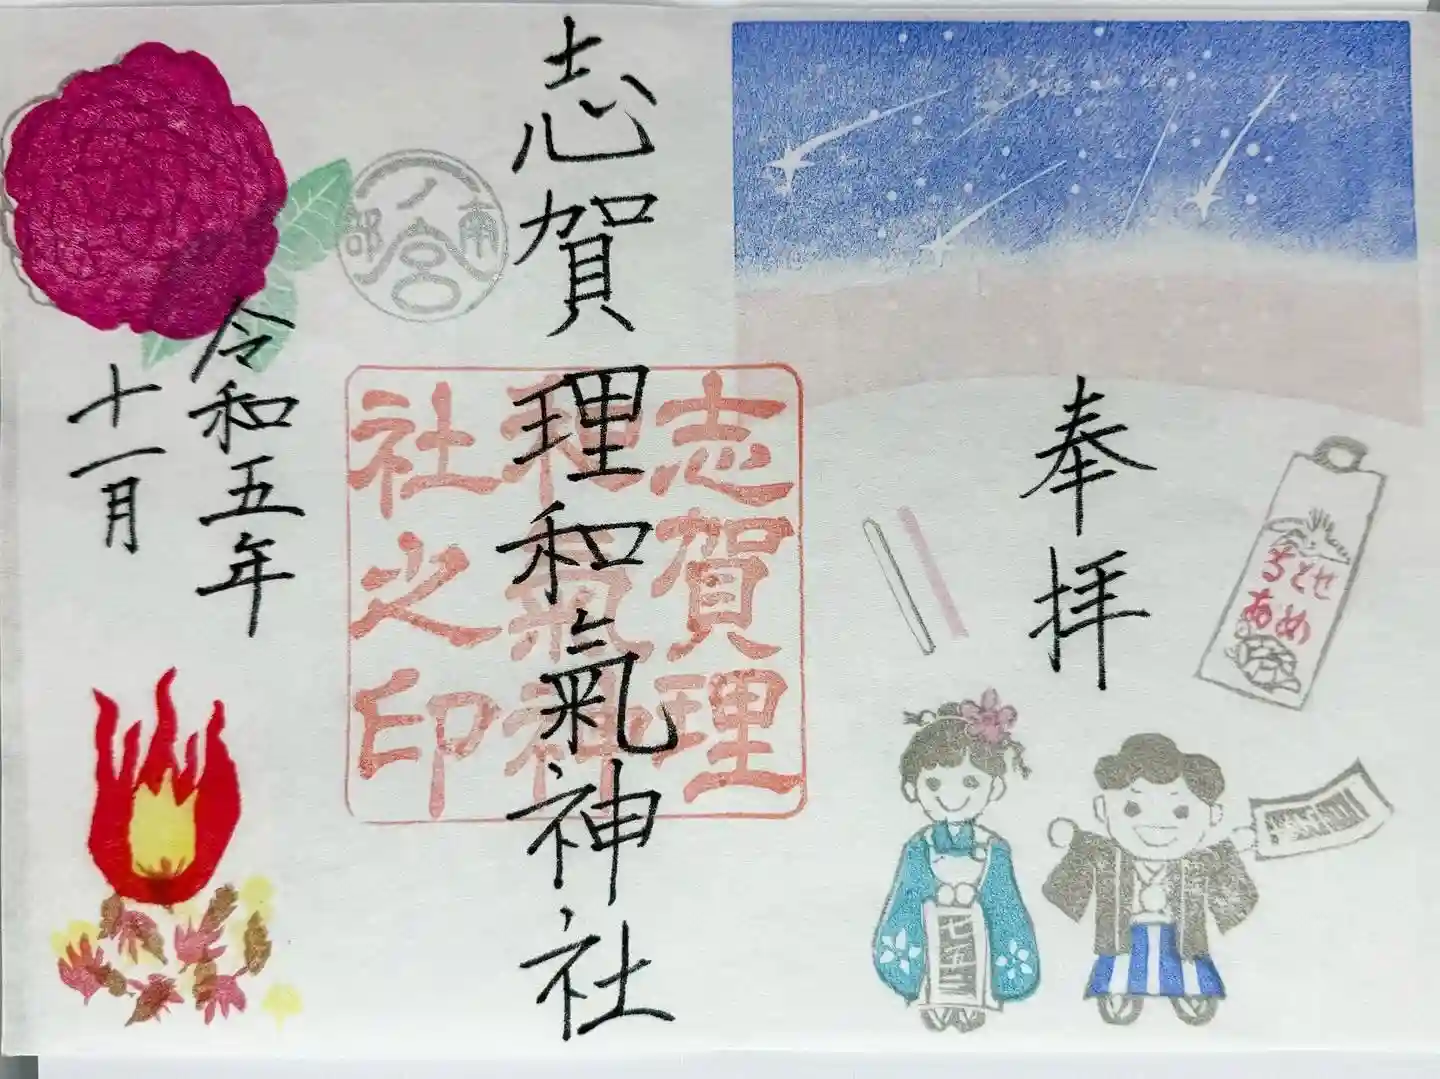 奉拝
ちとせ
あめ
志賀理和氣神社
志賀理
和氣神
社之印
南部
一ノ宮
令和五年
十一月